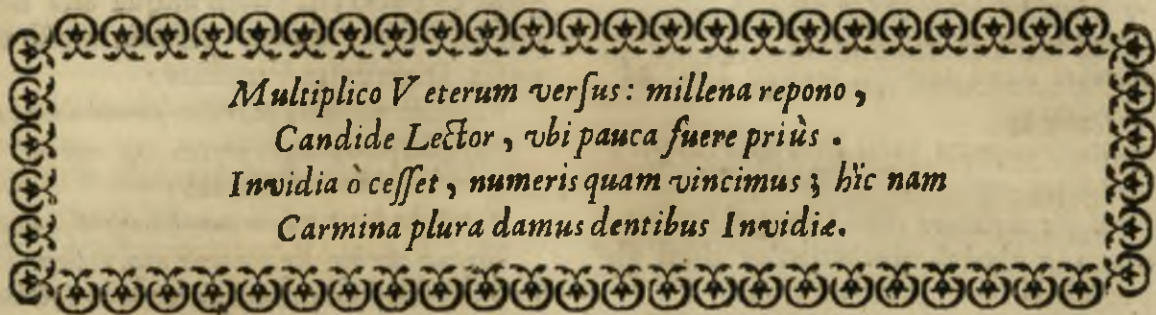 Multiplico Veterum verſus: millena repono,
Candide Lector, vbi pauca fuere priùs.
Invidia ò ceſſet, numeris quam vincimus; hìc nam
Carmina plura damus dentibus Invidiæ.